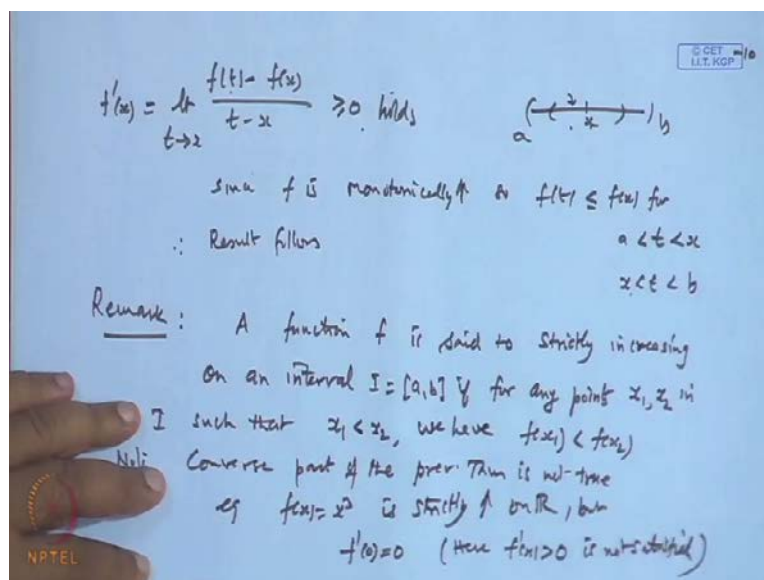 f'(x) = lt t→x f(t) - f(x) / t - x ≥ 0 holds
a ( ( x ) ) b
since f is monotonically ↑ so f(t) ≤ f(x) for
a < t < x
∴ Result follows
x < t < b
Remark : A function f is said to strictly increasing
on an interval I = [a,b] if for any point x₁, x₂ in
I such that x₁ < x₂, we have f(x₁) < f(x₂)
Note Converse part of the prev. Thm is not true
eg f(x) = x³ is strictly ↑ on R, but
f'(0) = 0 (Here f'(x) > 0 is not satisfied)
© CET
I.I.T. KGP
NPTEL